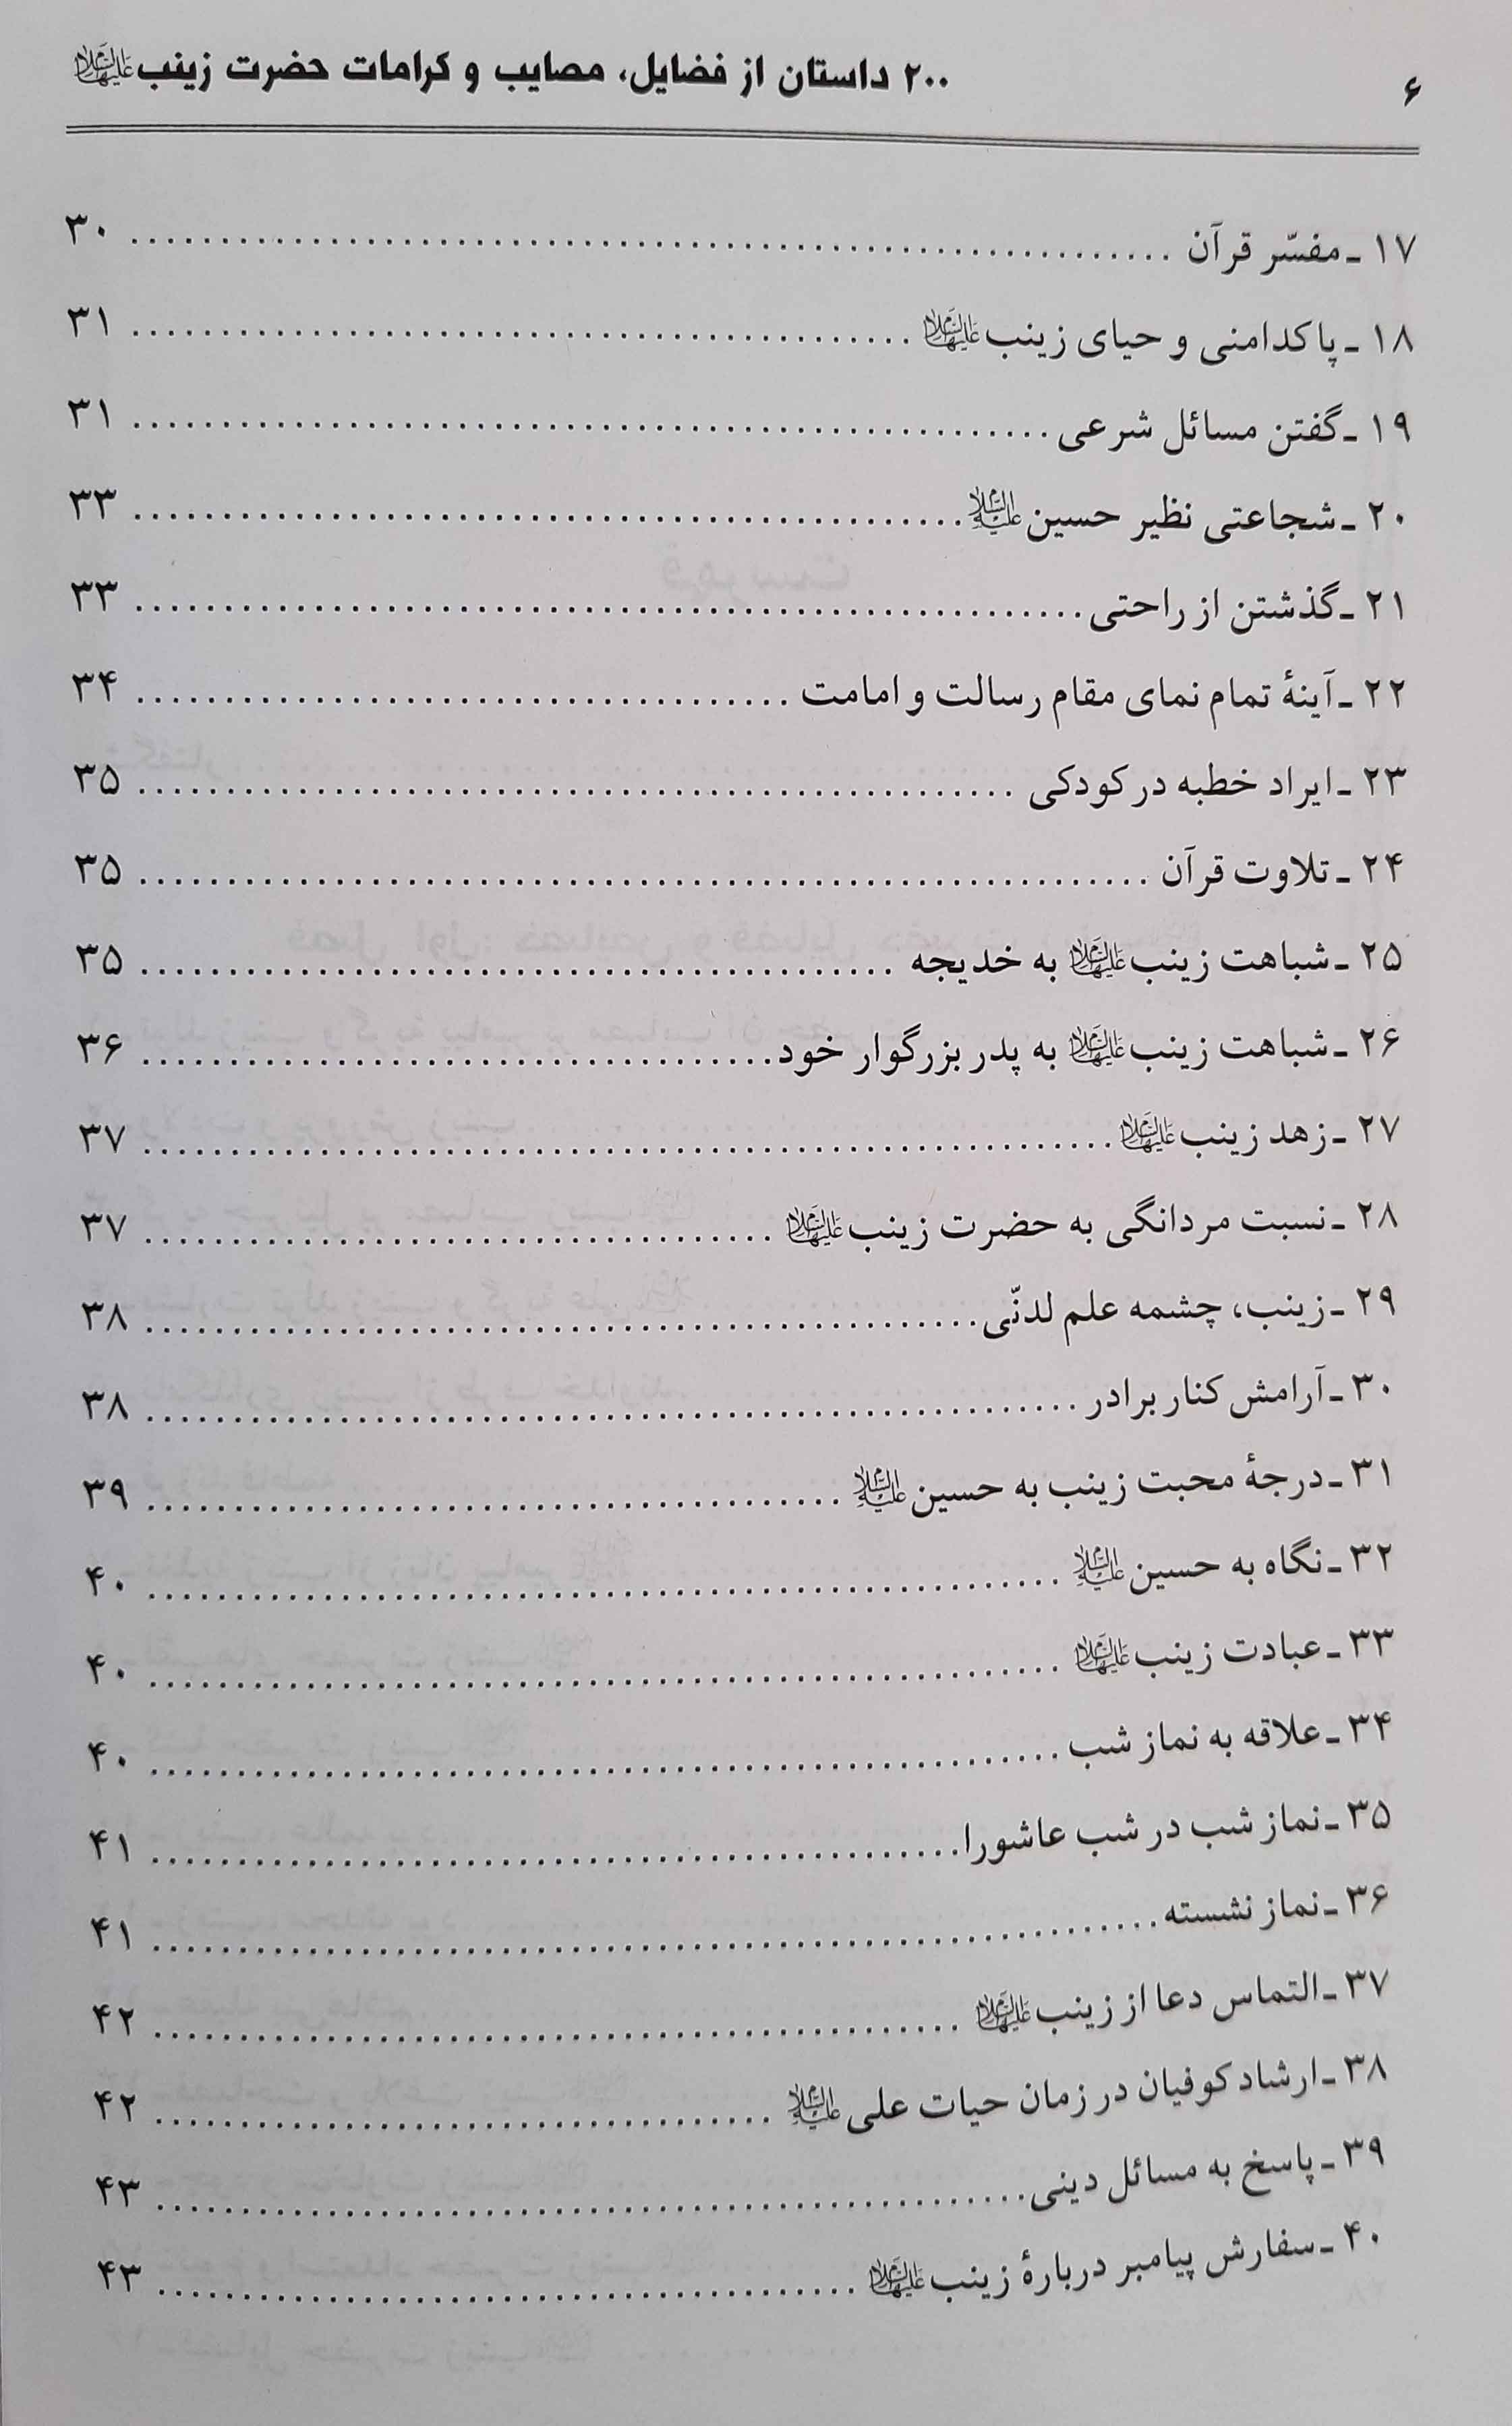 ۶ ۲۰۰ داستان از فضایل، مصایب و کرامات حضرت زینب علیهاالسلام
۱۷ ـ مفسّر قرآن ........ ۳۰
۱۸ ـ پاکدامنی و حیای زینب علیهاالسلام ........ ۳۱
۱۹ ـ گفتن مسائل شرعی ........ ۳۱
۲۰ ـ شجاعتی نظیر حسین علیه‌السلام ........ ۳۳
۲۱ ـ گذشتن از راحتی ........ ۳۳
۲۲ ـ آینهٔ تمام نمای مقام رسالت و امامت ........ ۳۴
۲۳ ـ ایراد خطبه در کودکی ........ ۳۵
۲۴ ـ تلاوت قرآن ........ ۳۵
۲۵ ـ شباهت زینب علیهاالسلام به خدیجه ........ ۳۵
۲۶ ـ شباهت زینب علیهاالسلام به پدر بزرگوار خود ........ ۳۶
۲۷ ـ زهد زینب علیهاالسلام ........ ۳۷
۲۸ ـ نسبت مردانگی به حضرت زینب علیهاالسلام ........ ۳۷
۲۹ ـ زینب، چشمه علم لدنّی ........ ۳۸
۳۰ ـ آرامش کنار برادر ........ ۳۸
۳۱ ـ درجهٔ محبت زینب به حسین علیه‌السلام ........ ۳۹
۳۲ ـ نگاه به حسین علیه‌السلام ........ ۴۰
۳۳ ـ عبادت زینب علیهاالسلام ........ ۴۰
۳۴ ـ علاقه به نماز شب ........ ۴۰
۳۵ ـ نماز شب در شب عاشورا ........ ۴۱
۳۶ ـ نماز نشسته ........ ۴۱
۳۷ ـ التماس دعا از زینب علیهاالسلام ........ ۴۲
۳۸ ـ ارشاد کوفیان در زمان حیات علی علیه‌السلام ........ ۴۲
۳۹ ـ پاسخ به مسائل دینی ........ ۴۳
۴۰ ـ سفارش پیامبر دربارهٔ زینب علیهاالسلام ........ ۴۳